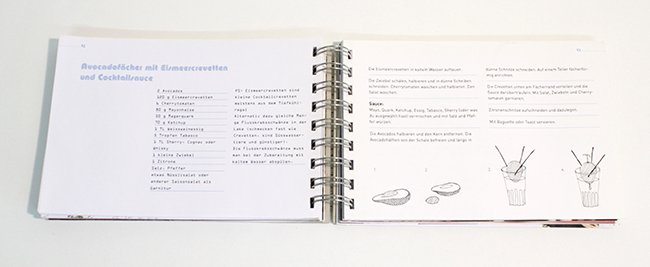 Avocadofächer mit Eismeercrevetten
und Cocktailsauce
2 Avocados
120 g Eismeercrevetten
6 Cherrytomaten
80 g Mayonnaise
50 g Magerquark
70 g Ketchup
1 TL Weissweinessig
3 Tropfen Tabasco
1 TL Sherry, Cognac oder
Whisky
1 kleine Zwiebel
1 Zitrone
Salz, Pfeffer
etwas Nüsslisalat oder
anderer Saisonsalat als
Garnitur
PS: Eismeercrevetten sind
kleine Cocktailcrevetten
meistens aus dem Tiefkühl-
regal
Alternativ dazu gleiche Men-
ge Flusskrebsschwänze in der
Lake (schmecken fast wie
Crevetten, sind Süsswasser-
tiere und günstiger).
Die Flusskrebsschwänze muss
man bei der Zubereitung mit
kaltem Wasser abspülen.
Die Eismeercrevetten in kaltem Wasser auftauen.
Die Zwiebel schälen, halbieren und in dünne Scheiben
schneiden. Cherrytomaten waschen und halbieren. Den
Salat waschen.
Sauce:
Mayo, Quark, Ketchup, Essig, Tabasco, Sherry (oder was
du ausgewählt hast) vermischen und mit Salz und Pfef-
fer würzen.
Die Avocados halbieren und den Kern entfernen. Die
Avocadohälften von der Schale befreien und längs in
dünne Schnitze schneiden. Auf einem Teller fächerför-
mig anrichten.
Die Crevetten unten am Fächerrand verteilen und die
Sauce darüberträufeln. Mit Salat, Zwiebeln und Cherry-
tomaten garnieren.
Zitronenschnitze aufschneiden und dazulegen.
Mit Baguette oder Toast servieren.
1.
2.
3.
4.